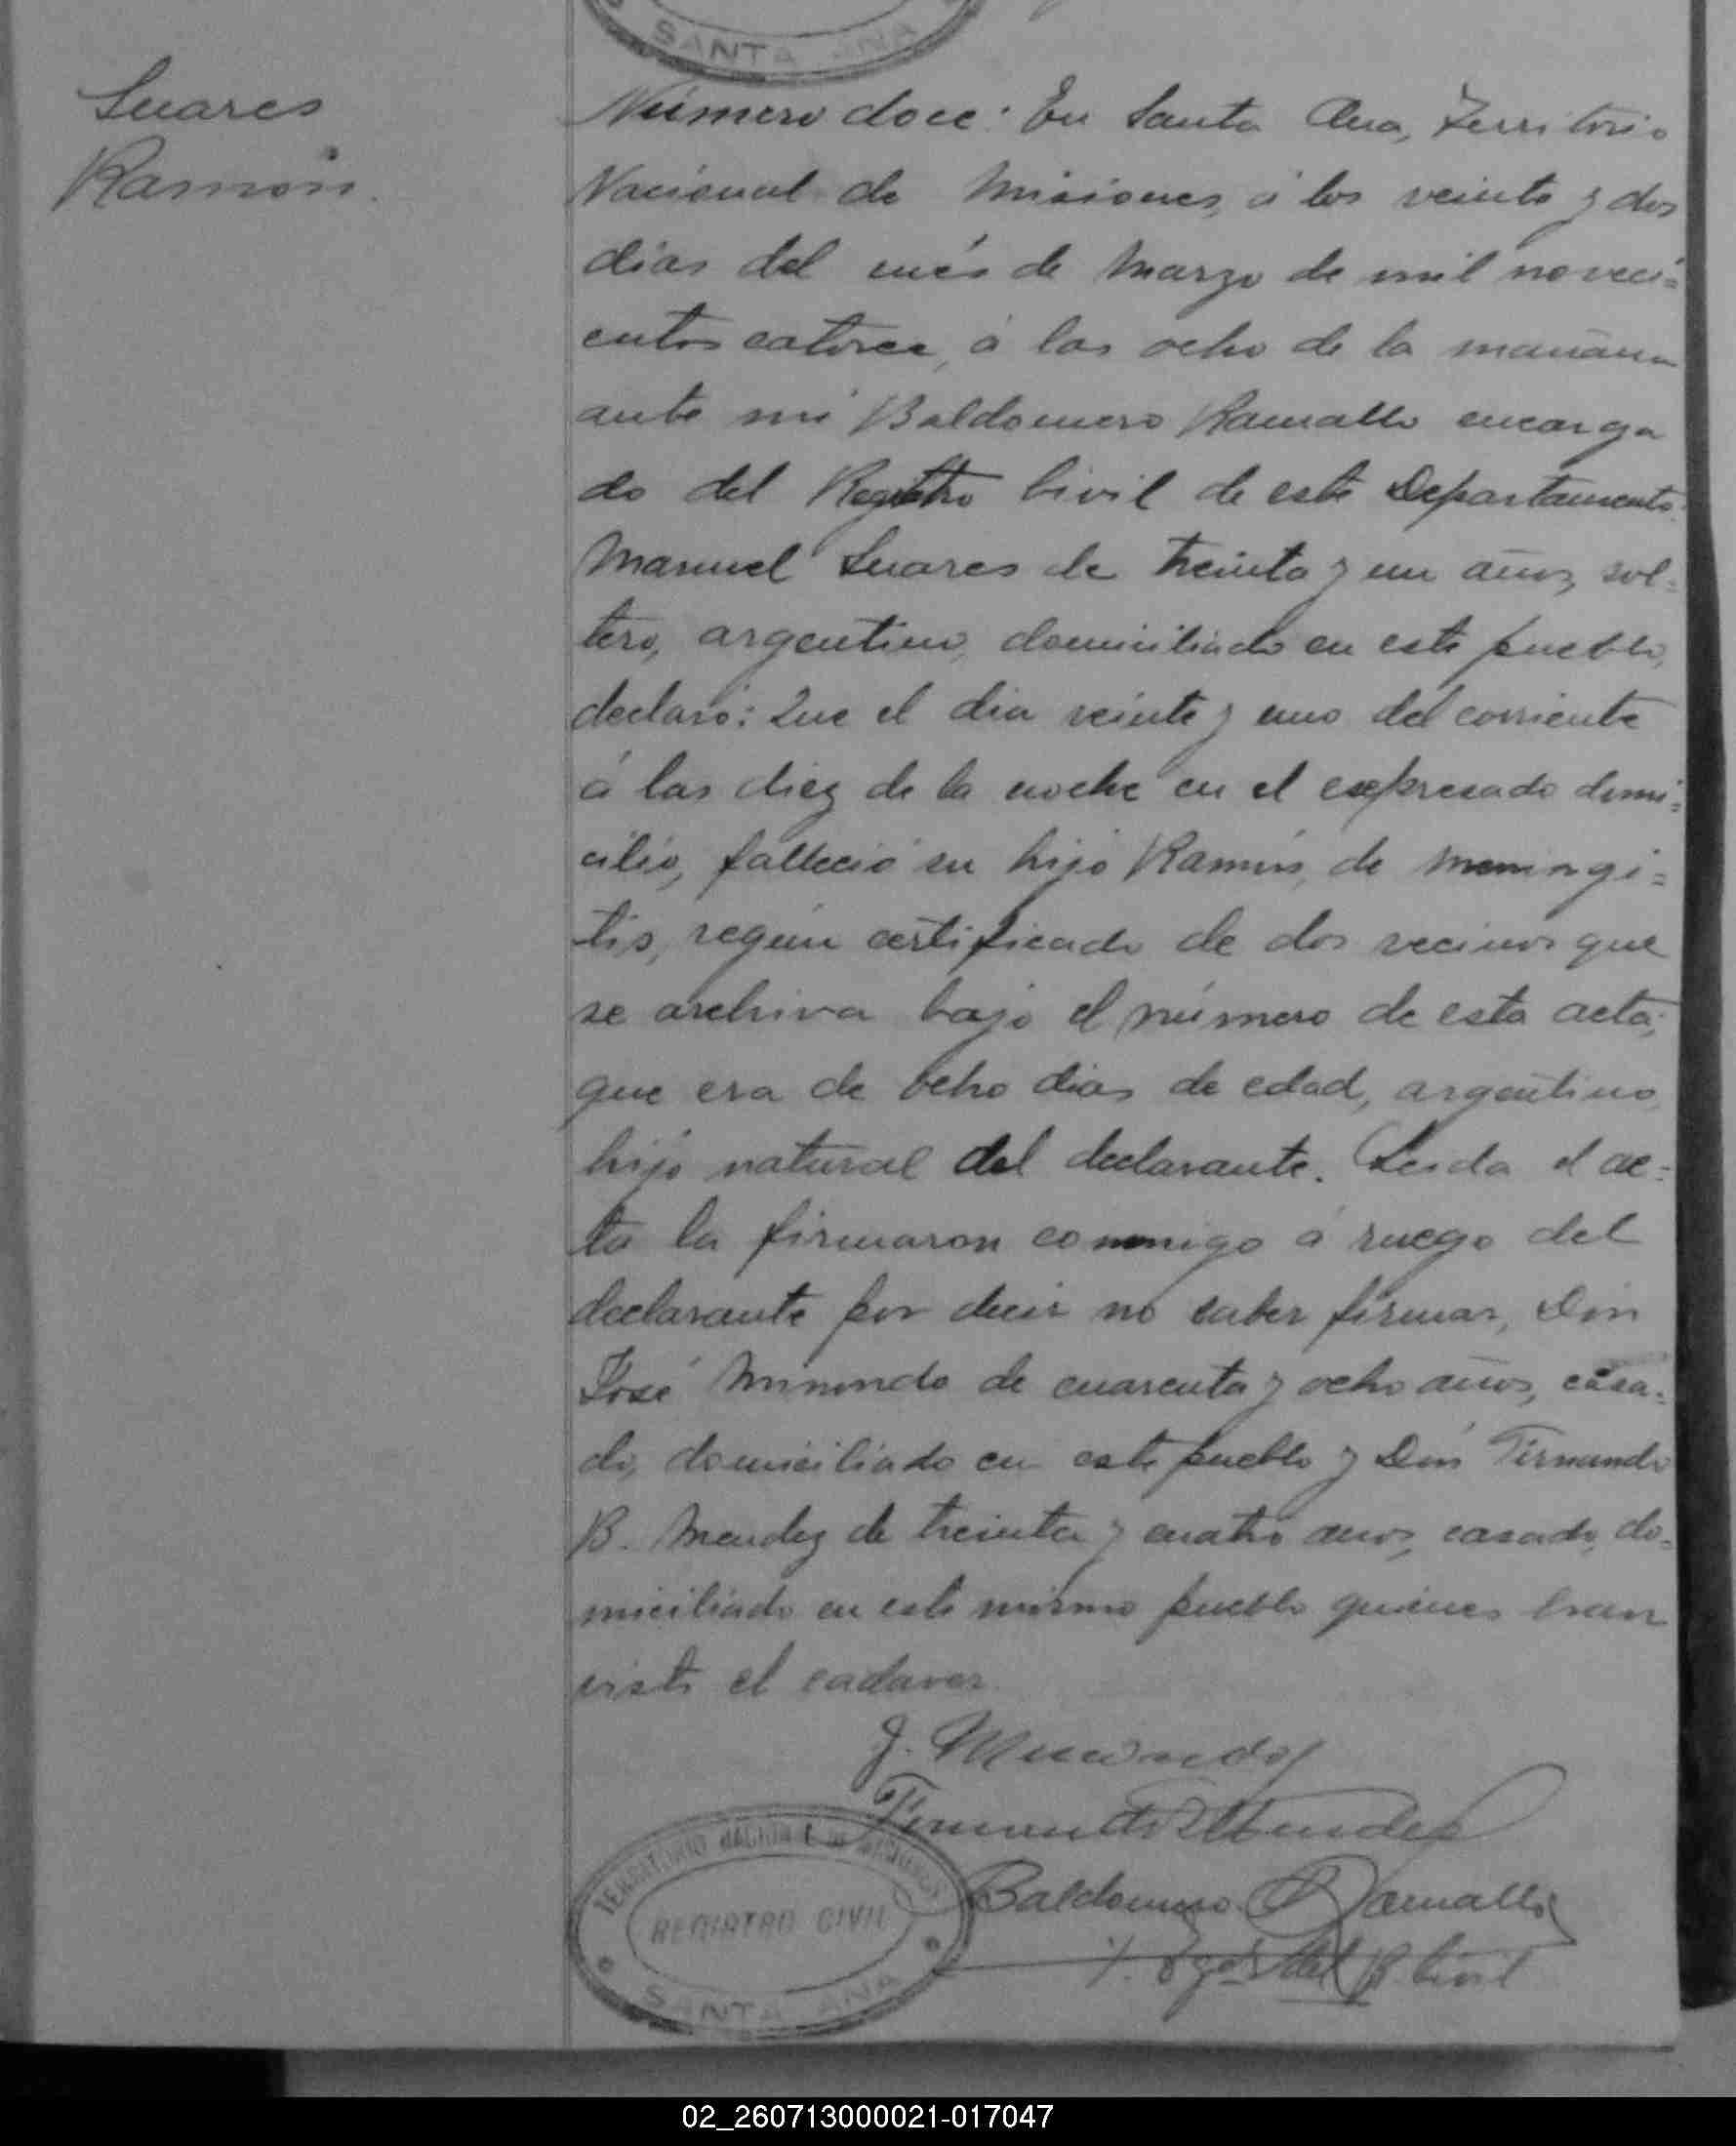 SANTA ANA
Suares
Ramón.
Número doce: En Santa Ana, Territorio
Nacional de Misiones, á los veinte y dos
dias del més de Marzo de mil noveci=
entos catorce, á las ocho de la mañana
ante mi Baldomero Ramallo encarga
do del Registro Civil de este Departamento.
Manuel Suares de treinta y un años, sol=
tero, argentino, domiciliado en este pueblo,
declaró: Que el dia veinte y uno del corriente
á las diez de la noche en el expresado domi=
cilio, falleció su hijo Ramón, de meningi=
tis, según certificado de dos vecinos que
se archiva bajo el número de esta acta;
que era de ocho dias de edad, argentino,
hijo natural del declarante. Leida el ac=
ta la firmaron conmigo á ruego del
declarante por decir no saber firmar, Don
José de cuarenta y ocho años, casa=
do, domiciliado en este pueblo y Don Fernando
B. Mendez de treinta y cuatro años, casado, do=
miciliado en este mismo pueblo quienes han
visto el cadaver.
J.
Fernando B Mendez
Baldomero Ramallo
del R. Civil
TERRITORIO NACIONAL DE MISIONES
REGISTRO CIVIL
SANTA ANA
02_260713000021-017047